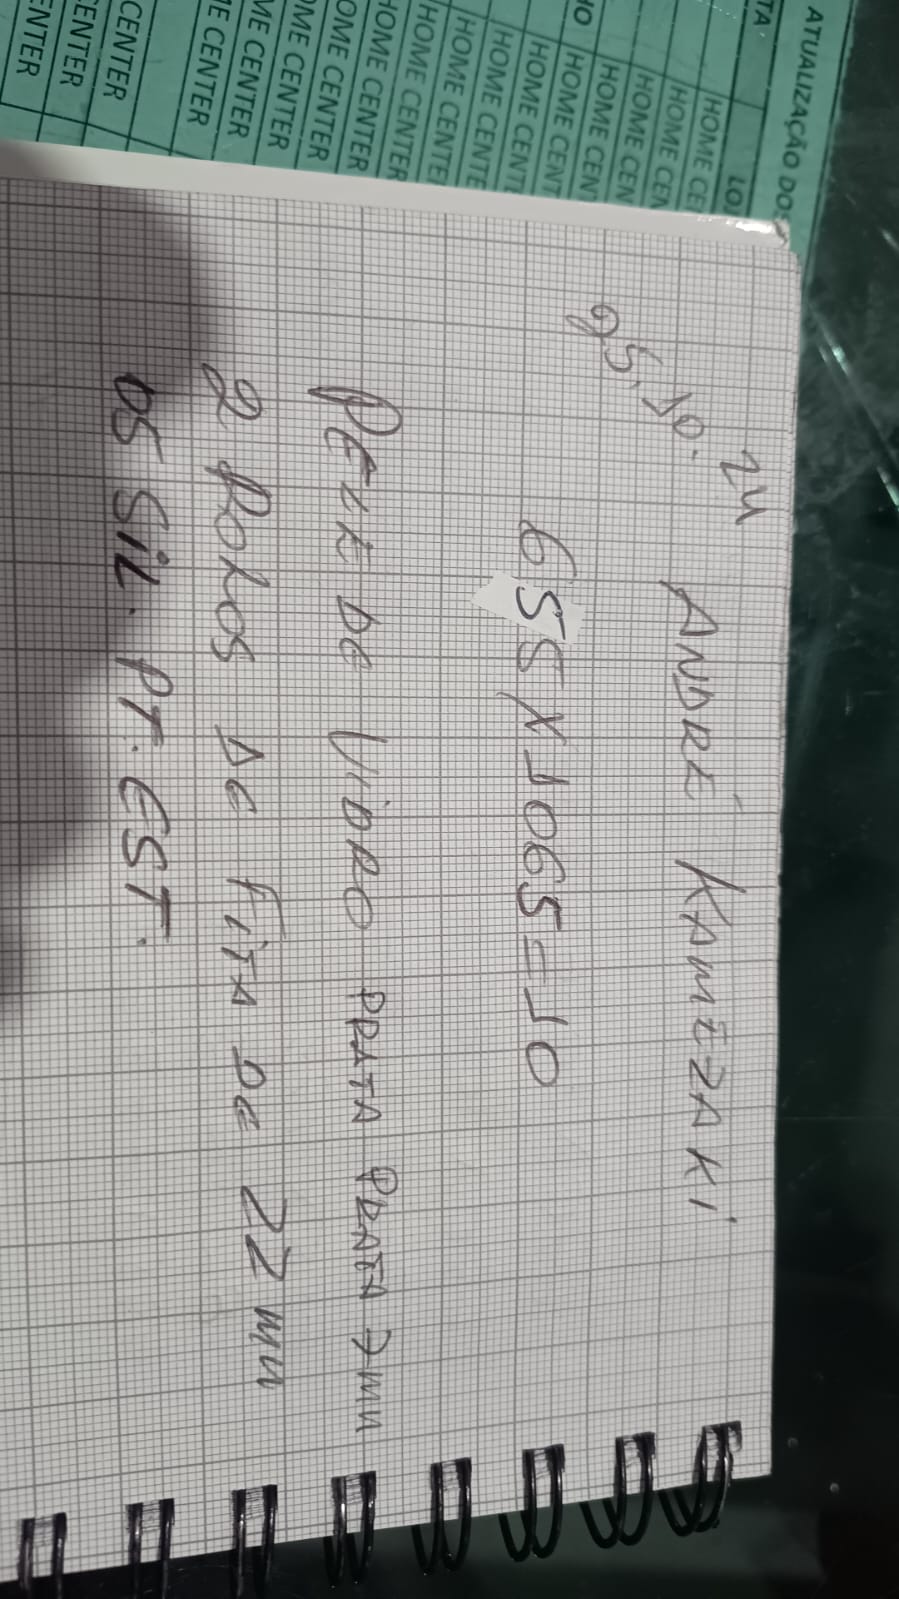 ATUALIZAÇÃO DOS
TA LO
HOME CE
HOME CEN
HOME CEN
HO HOME CENT
HOME CENT
HOME CENTE
HOME CENTE
HOME CENTE
HOME CENTER
HOME CENTER
OME CENTER
ME CENTER
ME CENTER
ME CENTER
CENTER
CENTER
ENTER
05.10.24
ANDRÉ KAMEZAKI
655X1065=10
DE VIDRO PRATA PRATA 7MM
2 ROLOS DE FITA DE 22 MM
05 SIL. PT. EST.